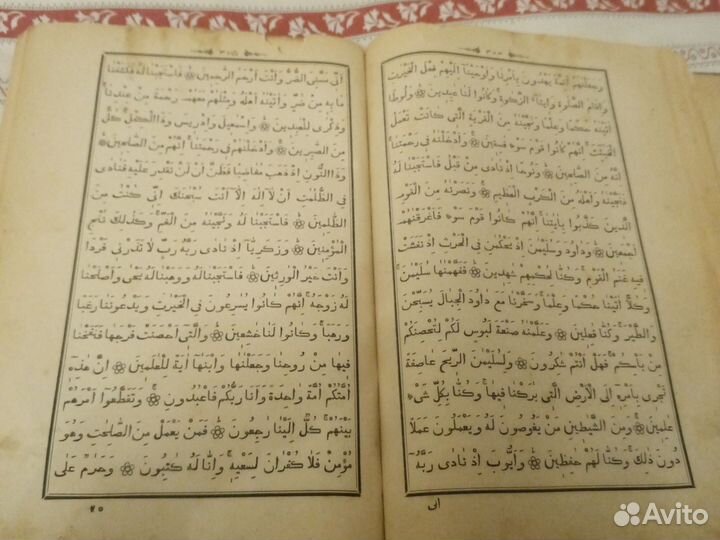 وَجَعَلْنٰهُمْ اَئِمَّةً يَهْدُونَ بِاَمْرِنَا وَاَوْحَيْنَا اِلَيْهِمْ فِعْلَ الْخَيْرٰتِ
وَاِقَامَ الصَّلٰوةِ وَاِيتَاءَ الزَّكٰوةِ وَكَانُوا لَنَا عٰبِدِينَ ۝ وَلُوطًا
اٰتَيْنٰهُ حُكْمًا وَعِلْمًا وَنَجَّيْنٰهُ مِنَ الْقَرْيَةِ الَّتِى كَانَتْ تَعْمَلُ
الْخَبٰئِثَ اِنَّهُمْ كَانُوا قَوْمَ سَوْءٍ فٰسِقِينَ ۝ وَاَدْخَلْنٰهُ فِى رَحْمَتِنَا
اِنَّهُ مِنَ الصَّالِحِينَ ۝ وَنُوحًا اِذْ نَادٰى مِنْ قَبْلُ فَاسْتَجَبْنَا لَهُ
فَنَجَّيْنٰهُ وَاَهْلَهُ مِنَ الْكَرْبِ الْعَظِيمِ ۝ وَنَصَرْنٰهُ مِنَ الْقَوْمِ
الَّذِينَ كَذَّبُوا بِاٰيَاتِنَا اِنَّهُمْ كَانُوا قَوْمَ سَوْءٍ فَاَغْرَقْنٰهُمْ
اَجْمَعِينَ ۝ وَدَاوُدَ وَسُلَيْمٰنَ اِذْ يَحْكُمٰنِ فِى الْحَرْثِ اِذْ نَفَشَتْ
فِيهِ غَنَمُ الْقَوْمِ وَكُنَّا لِحُكْمِهِمْ شٰهِدِينَ ۝ فَفَهَّمْنٰهَا سُلَيْمٰنَ
وَكُلًّا اٰتَيْنَا حُكْمًا وَعِلْمًا وَسَخَّرْنَا مَعَ دَاوُدَ الْجِبَالَ يُسَبِّحْنَ
وَالطَّيْرَ وَكُنَّا فٰعِلِينَ ۝ وَعَلَّمْنٰهُ صَنْعَةَ لَبُوسٍ لَكُمْ لِتُحْصِنَكُمْ
مِنْ بَأْسِكُمْ فَهَلْ اَنْتُمْ شٰكِرُونَ ۝ وَلِسُلَيْمٰنَ الرِّيحَ عَاصِفَةً
تَجْرِى بِاَمْرِهِ اِلَى الْاَرْضِ الَّتِى بٰرَكْنَا فِيهَا وَكُنَّا بِكُلِّ شَىْءٍ
عٰلِمِينَ ۝ وَمِنَ الشَّيٰطِينِ مَنْ يَغُوصُونَ لَهُ وَيَعْمَلُونَ عَمَلًا
دُونَ ذٰلِكَ وَكُنَّا لَهُمْ حٰفِظِينَ ۝ وَاَيُّوبَ اِذْ نَادٰى رَبَّهُ
اَنِّى
٣١٥
اَنِّى مَسَّنِىَ الضُّرُّ وَاَنْتَ اَرْحَمُ الرّٰحِمِينَ ۝ فَاسْتَجَبْنَا لَهُ فَكَشَفْنَا
مَا بِهِ مِنْ ضُرٍّ وَاٰتَيْنٰهُ اَهْلَهُ وَمِثْلَهُمْ مَعَهُمْ رَحْمَةً مِنْ عِنْدِنَا
وَذِكْرٰى لِلْعٰبِدِينَ ۝ وَاِسْمٰعِيلَ وَاِدْرِيسَ وَذَا الْكِفْلِ كُلٌّ
مِنَ الصَّابِرِينَ ۝ وَاَدْخَلْنٰهُمْ فِى رَحْمَتِنَا اِنَّهُمْ مِنَ الصَّالِحِينَ ۝
وَذَا النُّونِ اِذْ ذَهَبَ مُغَاضِبًا فَظَنَّ اَنْ لَنْ نَقْدِرَ عَلَيْهِ فَنَادٰى
فِى الظُّلُمَاتِ اَنْ لَا اِلٰهَ اِلَّا اَنْتَ سُبْحٰنَكَ اِنِّى كُنْتُ مِنَ
الظّٰلِمِينَ ۝ فَاسْتَجَبْنَا لَهُ وَنَجَّيْنٰهُ مِنَ الْغَمِّ وَكَذٰلِكَ نُنْجِى
الْمُؤْمِنِينَ ۝ وَزَكَرِيَّا اِذْ نَادٰى رَبَّهُ رَبِّ لَا تَذَرْنِى فَرْدًا
وَاَنْتَ خَيْرُ الْوٰرِثِينَ ۝ فَاسْتَجَبْنَا لَهُ وَوَهَبْنَا لَهُ يَحْيٰى وَاَصْلَحْنَا
لَهُ زَوْجَهُ اِنَّهُمْ كَانُوا يُسٰرِعُونَ فِى الْخَيْرٰتِ وَيَدْعُونَنَا رَغَبًا
وَرَهَبًا وَكَانُوا لَنَا خٰشِعِينَ ۝ وَالَّتِى اَحْصَنَتْ فَرْجَهَا فَنَفَخْنَا
فِيهَا مِنْ رُوحِنَا وَجَعَلْنٰهَا وَابْنَهَا اٰيَةً لِلْعٰلَمِينَ ۝ اِنَّ هٰذِهِ
اُمَّتُكُمْ اُمَّةً وٰحِدَةً وَاَنَا رَبُّكُمْ فَاعْبُدُونِ ۝ وَتَقَطَّعُوا اَمْرَهُمْ
بَيْنَهُمْ كُلٌّ اِلَيْنَا رٰجِعُونَ ۝ فَمَنْ يَعْمَلْ مِنَ الصَّالِحَاتِ وَهُوَ
مُؤْمِنٌ فَلَا كُفْرَانَ لِسَعْيِهِ وَاِنَّا لَهُ كٰتِبُونَ ۝ وَحَرَامٌ عَلٰى
٤٥
Avito